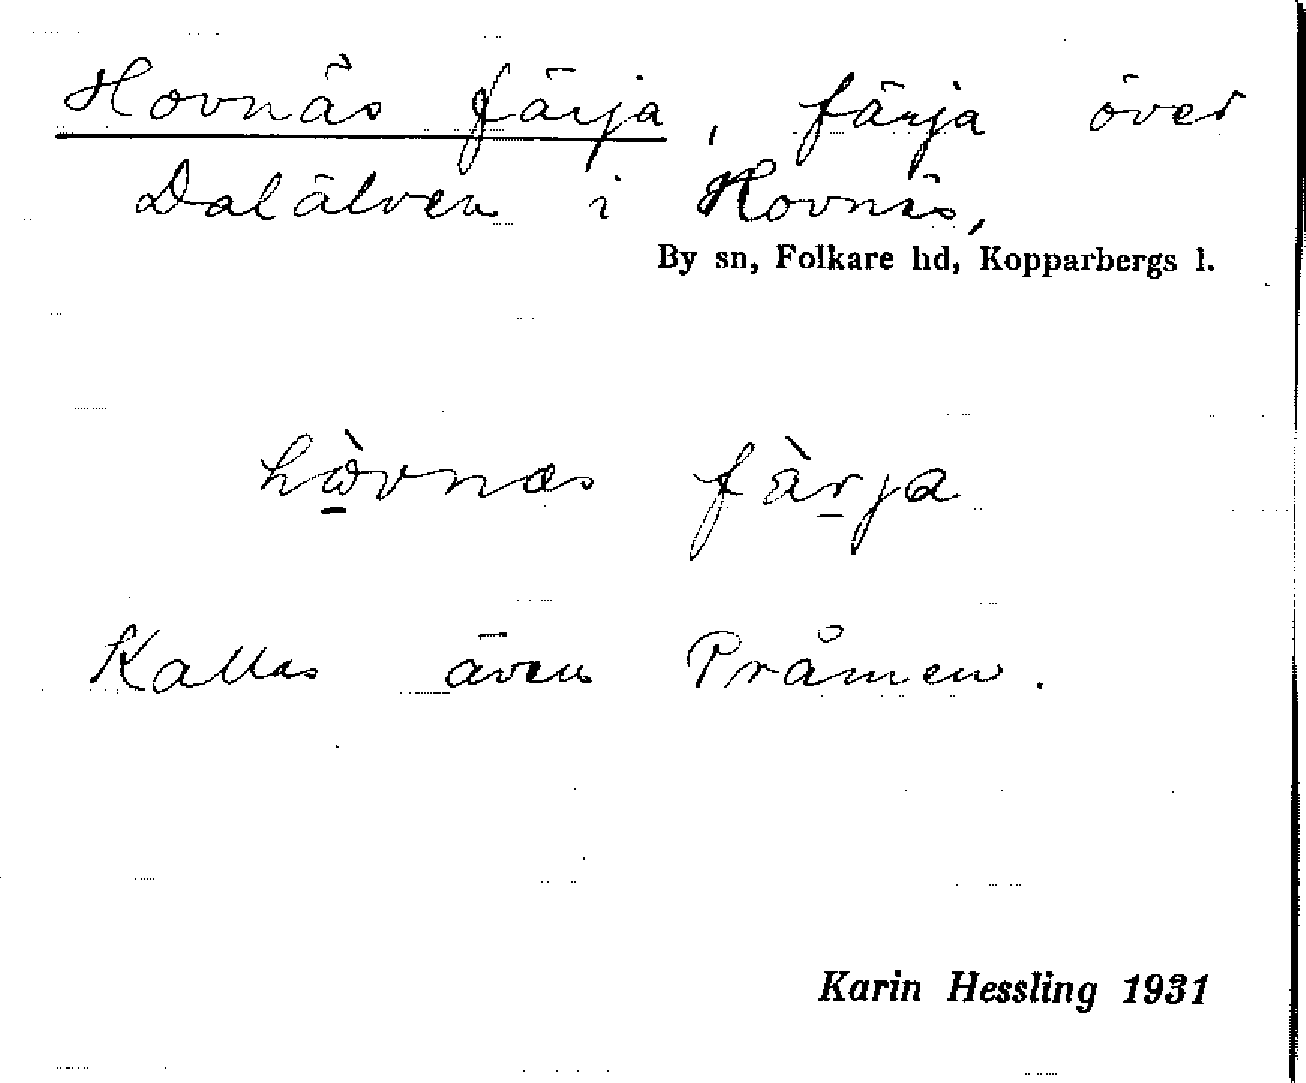 Hovnäs färja, färja över
Dalälven i Hovnäs,
By sn, Folkare hd, Kopparbergs l.
hòvnæs fàrja
Kallas även Pråmen.
Karin Hessling 1931